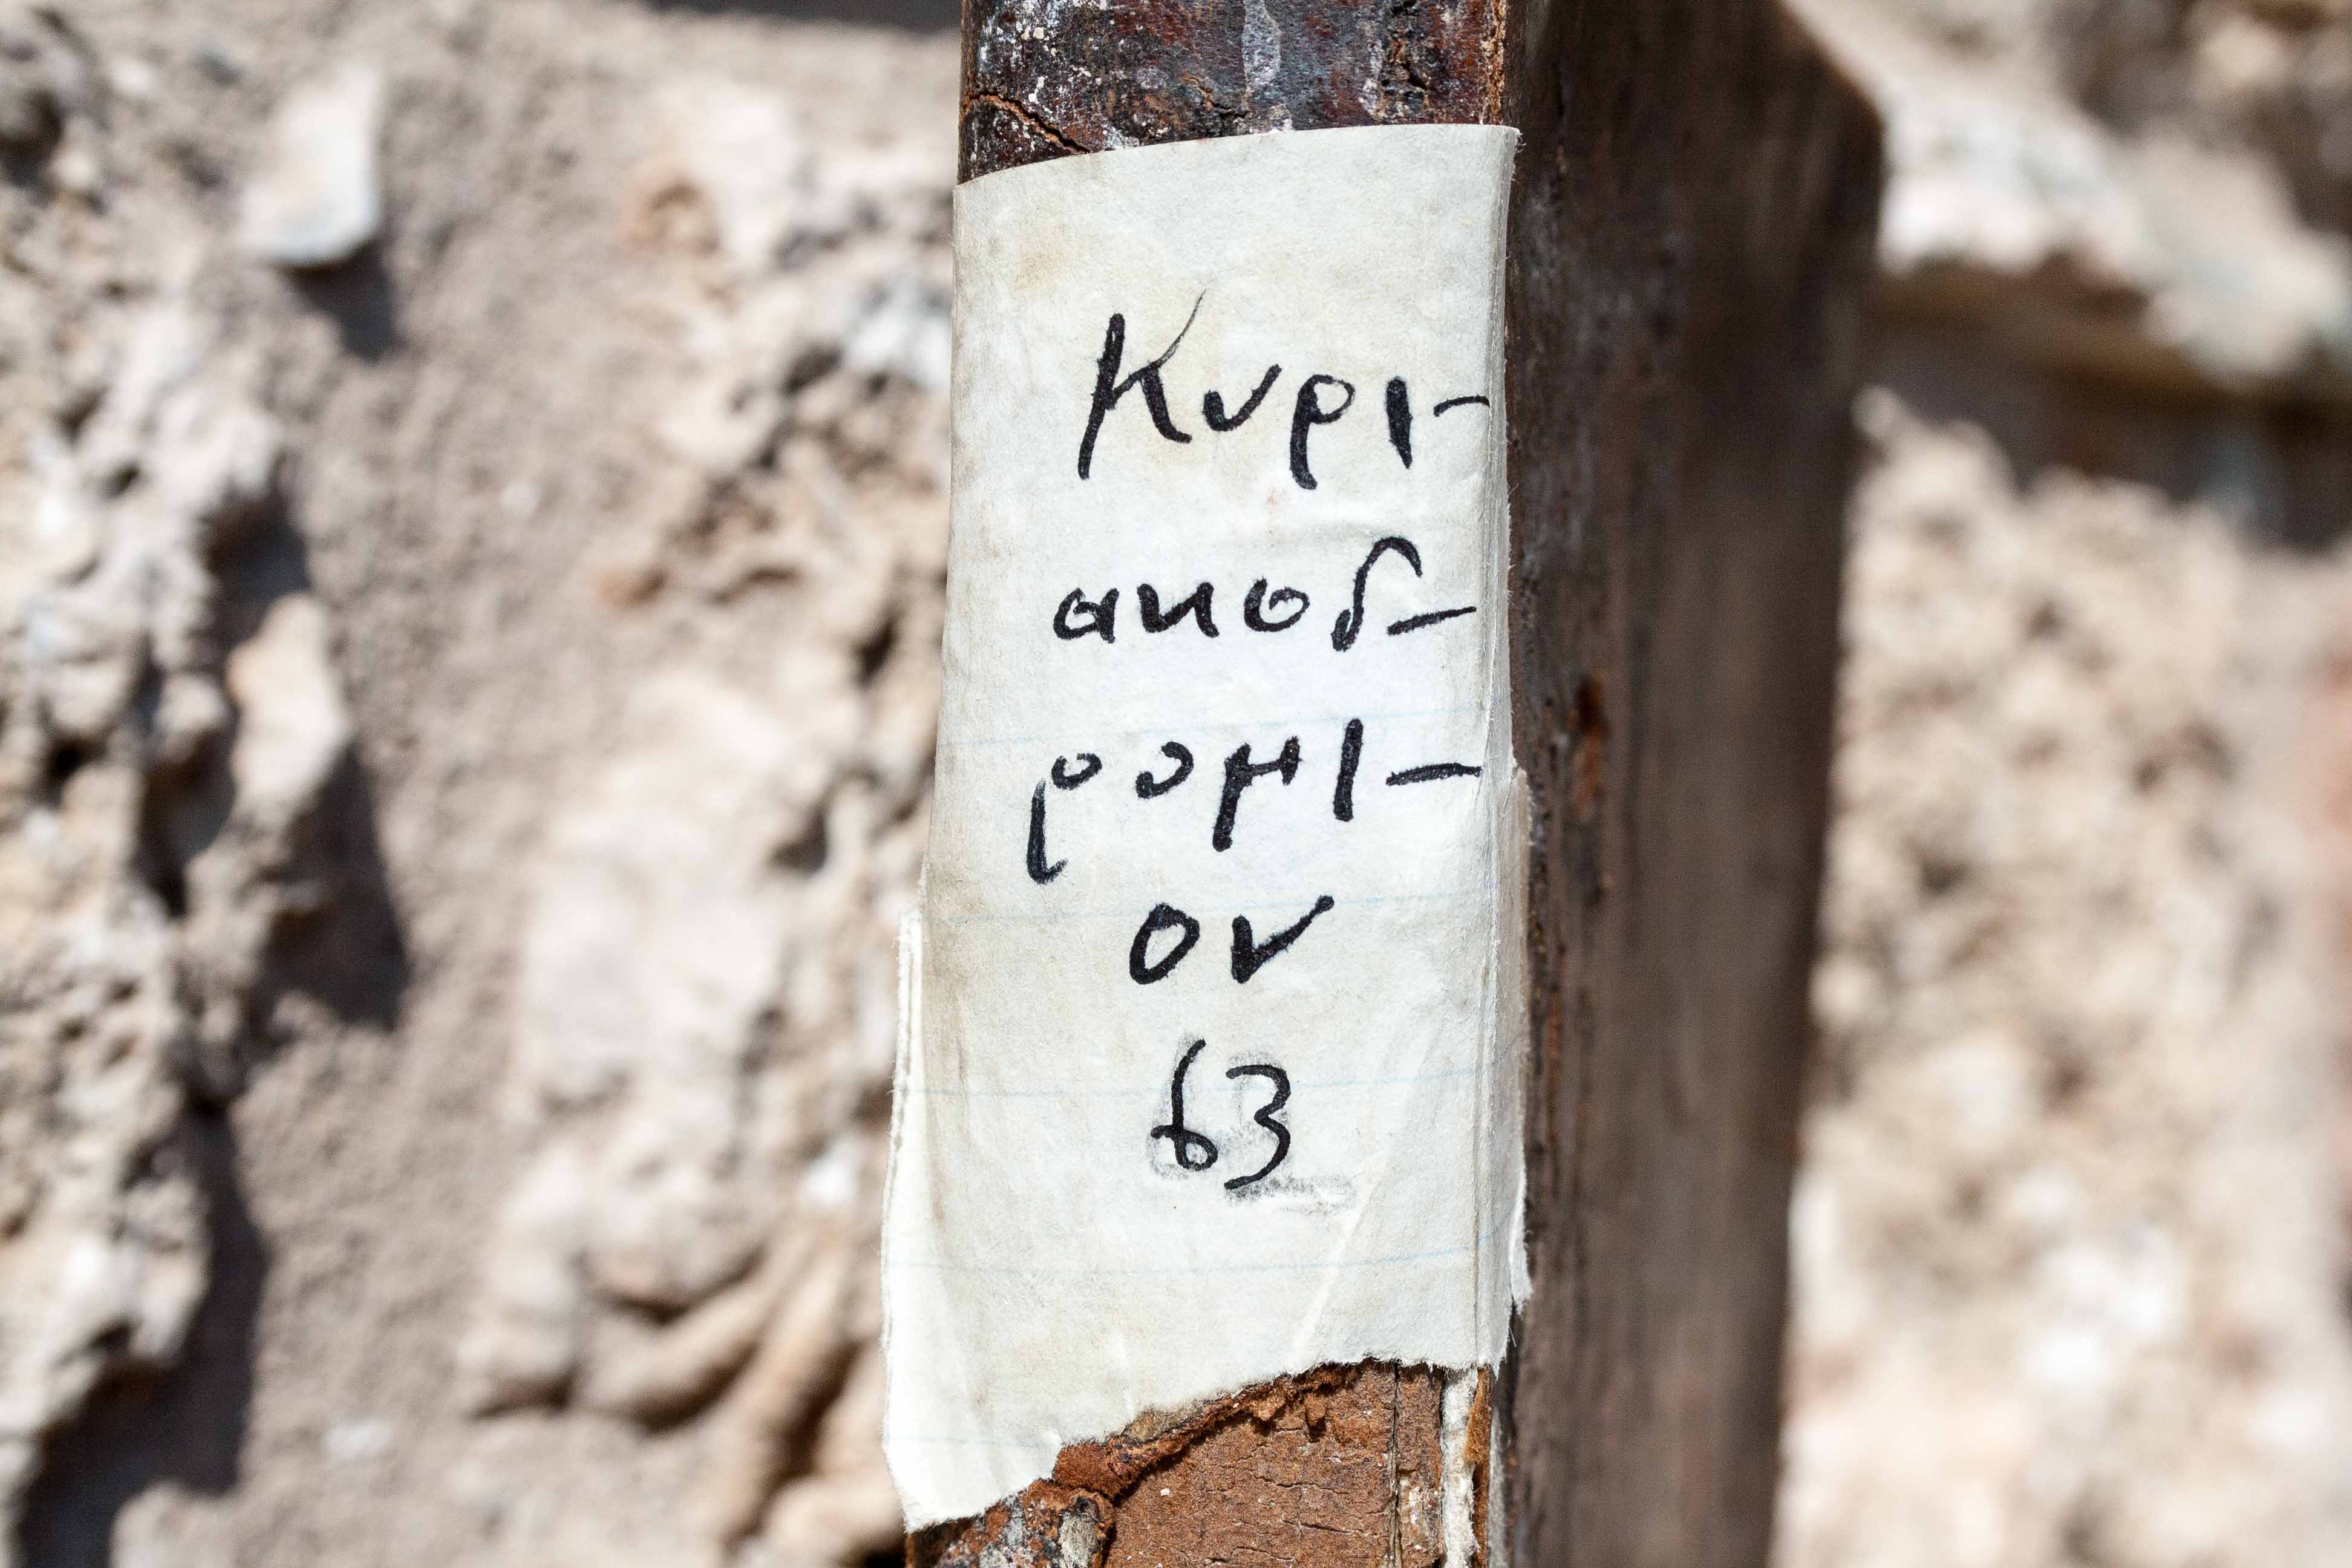 Κυρι-
ακοδ-
ρομι-
ον
63